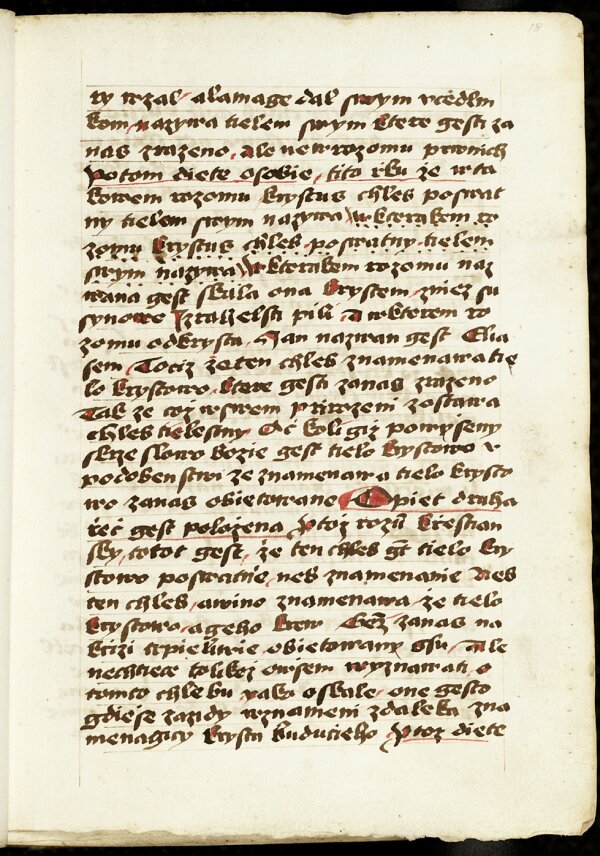 18
ry wzal / alamage dal swym vcedlni
kom / nazywa tielem swym ktere gesti za
nas zrazeno / ale newrozumu prwnich
potom diete osobie / tito rku ze wta
kowem rozomu krystus chleb poswat
ny tielem swym nazywa / wkterakem ro
zomu krystus chleb poswatny tielem
swym nazywa / wkterakem rozomu naz
wana gest skala ona krystem / zniez su
synowe Izrahelsti pili / A wkterem ro
zomu odkrysta / Jan nazwan gest Elia
sem / Tociz zeten chleb znamenawa tie
lo krystowo / ktere gesti zanas zrazeno
Tak ze coz wswem prirozeni zostawa
chleb tielestny / Ac koli giz powyseny
skrze slowo bozie gest tielo krystowo v
podobenstwi ze znamenawa tielo krysto
wo zanas obietowane / Opiet druha
rec gest polozena / Ptoz rozu krestian
sky / totot gest / ze ten chleb gt tielo kry
stowo poswatne / neb znamenanie Neb
ten chleb / awino znamenawa / ze tielo
krystowo / a geho krew / Gez zanas na
krizi trpieliwie obietowany gsu / Ale
nechtiece tolikoz owsem wyznawati / o
tomto chlebu yako oskale / one gesto
gdiese zazidy wznameni zdaleka zna
menagicy krysta buducieho / Ptoz diete